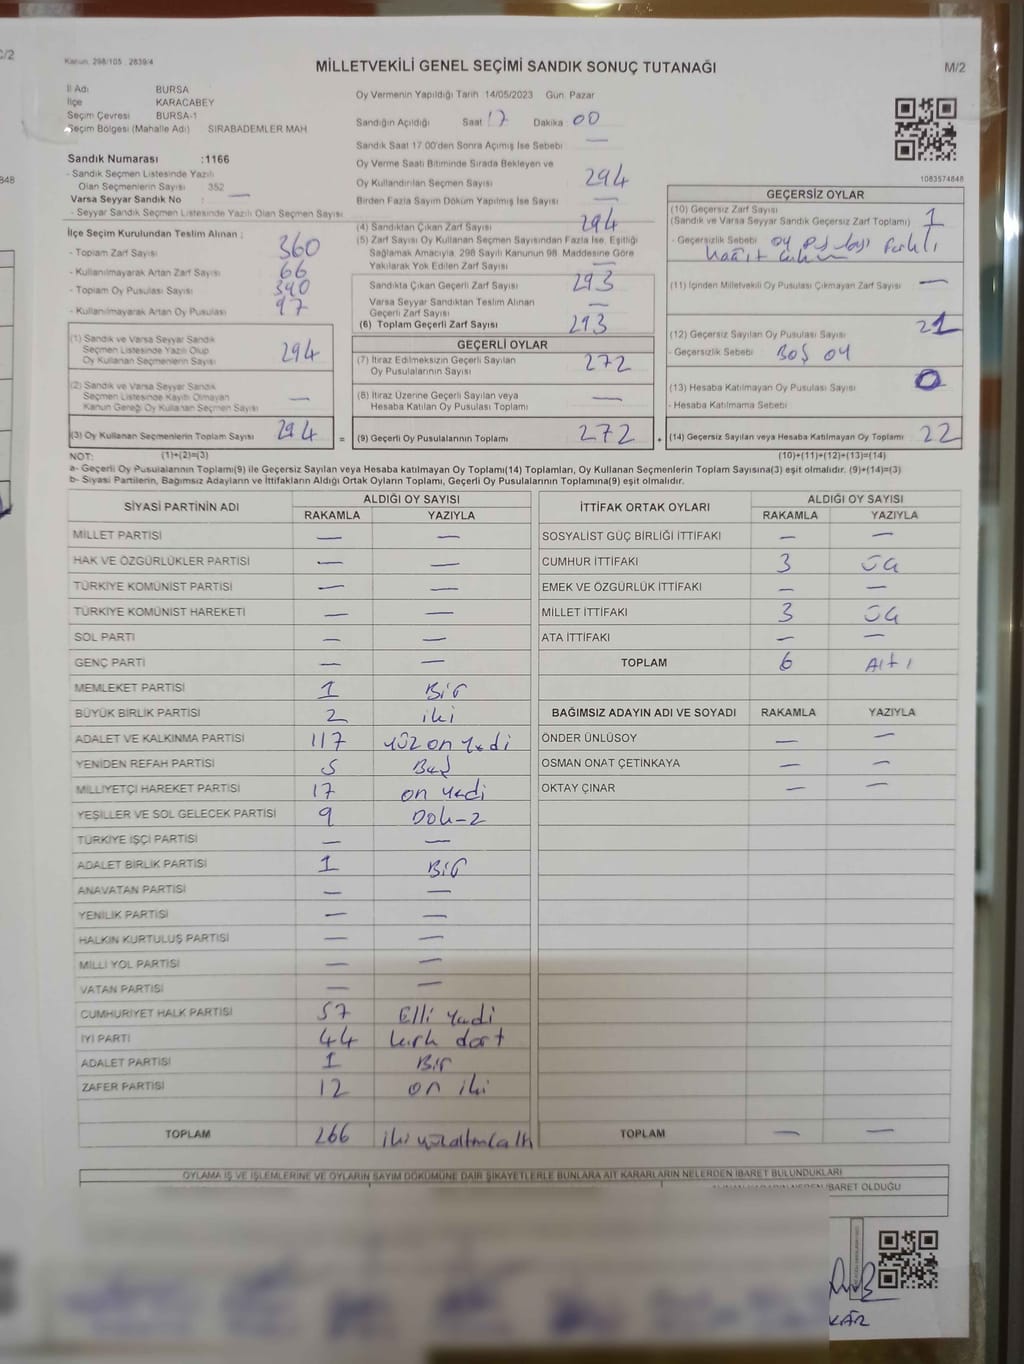 Kanun. 298/105 , 2839/4
MİLLETVEKİLİ GENEL SEÇİMİ SANDIK SONUÇ TUTANAĞI
M/2
İl Adı BURSA
İlçe KARACABEY
Seçim Çevresi BURSA-1
Seçim Bölgesi (Mahalle Adı) SIRABADEMLER MAH
Sandık Numarası :1166
- Sandık Seçmen Listesinde Yazılı
Olan Seçmenlerin Sayısı 352
Varsa Seyyar Sandık No : —
- Seyyar Sandık Seçmen Listesinde Yazılı Olan Seçmen Sayısı
İlçe Seçim Kurulundan Teslim Alınan ;
- Toplam Zarf Sayısı 360
- Kullanılmayarak Artan Zarf Sayısı 66
- Toplam Oy Pusulası Sayısı
- Kullanılmayarak Artan Oy Pusulası 97
(1) Sandık ve Varsa Seyyar Sandık
Seçmen Listesinde Yazılı Olup
Oy Kullanan Seçmenlerin Sayısı 294
(2) Sandık ve Varsa Seyyar Sandık
Seçmen Listesinde Kayıtlı Olmayan
Kanun Gereği Oy Kullanan Seçmen Sayısı —
(3) Oy Kullanan Seçmenlerin Toplam Sayısı 294 =
Oy Vermenin Yapıldığı Tarih 14/05/2023 Gün. Pazar
Sandığın Açıldığı Saat 17 Dakika 00
Sandık Saat 17 00'den Sonra Açımış İse Sebebi —
Oy Verme Saati Bitiminde Sırada Bekleyen ve
Oy Kullandırılan Seçmen Sayısı 294
Birden Fazla Sayım Döküm Yapılmış İse Sayısı —
(4) Sandıktan Çıkan Zarf Sayısı 294
(5) Zarf Sayısı Oy Kullanan Seçmen Sayısından Fazla İse, Eşitliği
Sağlamak Amacıyla, 298 Sayılı Kanunun 98. Maddesine Göre
Yakılarak Yok Edilen Zarf Sayısı —
Sandıkta Çıkan Geçerli Zarf Sayısı 293
Varsa Seyyar Sandıktan Teslim Alınan
Geçerli Zarf Sayısı —
(6) Toplam Geçerli Zarf Sayısı 293
GEÇERLİ OYLAR
(7) İtiraz Edilmeksizin Geçerli Sayılan
Oy Pusulalarının Sayısı 272
(8) İtiraz Üzerine Geçerli Sayılan veya
Hesaba Katılan Oy Pusulası Toplamı —
(9) Geçerli Oy Pusulalarının Toplamı 272 +
1083574848
GEÇERSİZ OYLAR
(10) Geçersiz Zarf Sayısı
(Sandık ve Varsa Seyyar Sandık Geçersiz Zarf Toplamı) 1
- Geçersizlik Sebebi oy pusulası farklı
(11) İçinden Milletvekili Oy Pusulası Çıkmayan Zarf Sayısı —
(12) Geçersiz Sayılan Oy Pusulası Sayısı 21
- Geçersizlik Sebebi BOŞ OY
(13) Hesaba Katılmayan Oy Pusulası Sayısı 0
- Hesaba Katılmama Sebebi
(14) Geçersiz Sayılan veya Hesaba Katılmayan Oy Toplamı 22
NOT: (1)+(2)=(3) (10)+(11)+(12)+(13)=(14)
a- Geçerli Oy Pusulalarının Toplamı(9) ile Geçersiz Sayılan veya Hesaba katılmayan Oy Toplamı(14) Toplamları, Oy Kullanan Seçmenlerin Toplam Sayısına(3) eşit olmalıdır. (9)+(14)=(3)
b- Siyasi Partilerin, Bağımsız Adayların ve İttifakların Aldığı Ortak Oyların Toplamı, Geçerli Oy Pusulalarının Toplamına(9) eşit olmalıdır.
SİYASİ PARTİNİN ADI ALDIĞI OY SAYISI
RAKAMLA YAZIYLA
MİLLET PARTİSİ — —
HAK VE ÖZGÜRLÜKLER PARTİSİ — —
TÜRKİYE KOMÜNİST PARTİSİ — —
TÜRKİYE KOMÜNİST HAREKETİ — —
SOL PARTİ — —
GENÇ PARTİ — —
MEMLEKET PARTİSİ 1 Bir
BÜYÜK BİRLİK PARTİSİ 2 iki
ADALET VE KALKINMA PARTİSİ 117 yüz on yedi
YENİDEN REFAH PARTİSİ 5 Beş
MİLLİYETÇİ HAREKET PARTİSİ 17 on yedi
YEŞİLLER VE SOL GELECEK PARTİSİ 9 Dokuz
TÜRKİYE İŞÇİ PARTİSİ — —
ADALET BİRLİK PARTİSİ 1 Bir
ANAVATAN PARTİSİ — —
YENİLİK PARTİSİ — —
HALKIN KURTULUŞ PARTİSİ — —
MİLLİ YOL PARTİSİ — —
VATAN PARTİSİ — —
CUMHURİYET HALK PARTİSİ 57 Elli yedi
İYİ PARTİ 44 kırk dört
ADALET PARTİSİ 1 Bir
ZAFER PARTİSİ 12 on iki
TOPLAM 266 iki yüz altmış altı
İTTİFAK ORTAK OYLARI ALDIĞI OY SAYISI
RAKAMLA YAZIYLA
SOSYALİST GÜÇ BİRLİĞİ İTTİFAKI — —
CUMHUR İTTİFAKI 3 üç
EMEK VE ÖZGÜRLÜK İTTİFAKI — —
MİLLET İTTİFAKI 3 üç
ATA İTTİFAKI — —
TOPLAM 6 Altı
BAĞIMSIZ ADAYIN ADI VE SOYADI RAKAMLA YAZIYLA
ÖNDER ÜNLÜSOY — —
OSMAN ONAT ÇETİNKAYA — —
OKTAY ÇINAR — —
TOPLAM — —
OYLAMA İŞ VE İŞLEMLERİNE VE OYLARIN SAYIM DÖKÜMÜNE DAİR ŞİKAYETLERLE BUNLARA AİT KARARLARIN NELERDEN İBARET BULUNDUKLARI
İBARET OLDUĞU